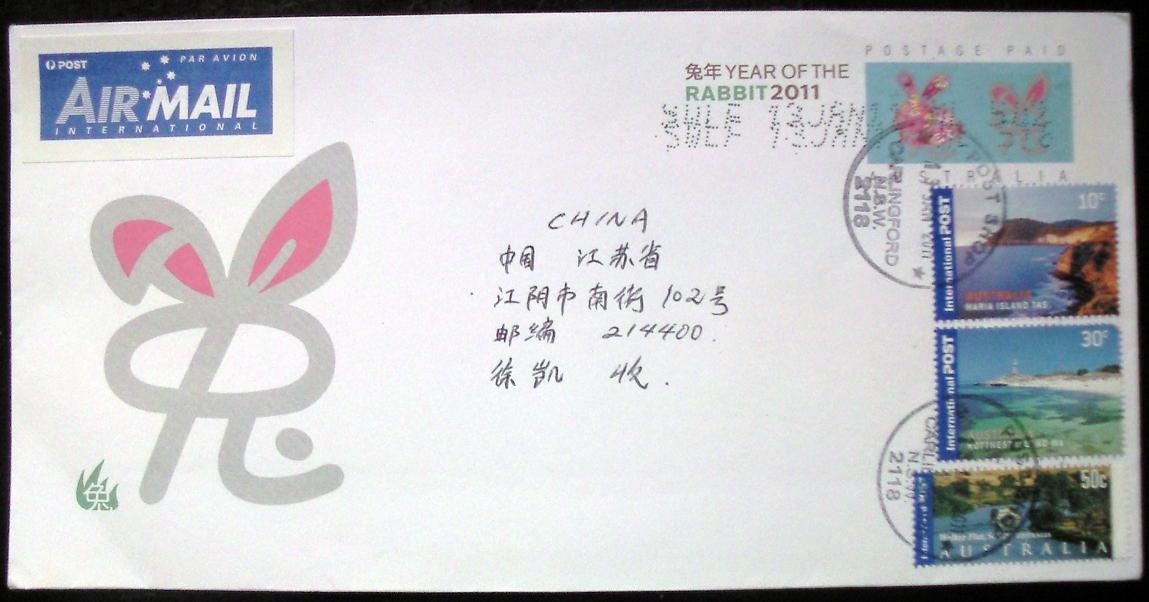 POST PAR AVION
AIR MAIL
INTERNATIONAL
兔年 YEAR OF THE
RABBIT 2011
POSTAGE PAID
AUSTRALIA
SWLF 13JAN
SWLF 13JAN
POST SHOP
13 JAN 2011
CARLINGFORD
N.S.W.
2118
CHINA
中国 江苏省
江阴市南街102号
邮编 214400.
徐凯 收.
10c
International POST
AUSTRALIA
MARIA ISLAND TAS
30c
International POST
ROTTNEST ISLAND WA
N.S.W.
2118
50c
AUSTRALIA
兔